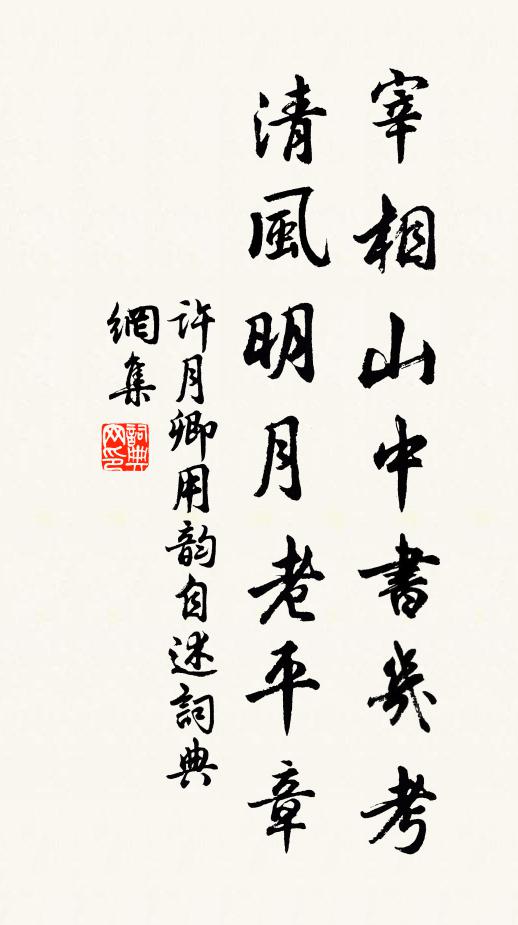 宰相山中書幾考
清風明月老平章
許月卿用韵自述詞典
網集
詞典
网印